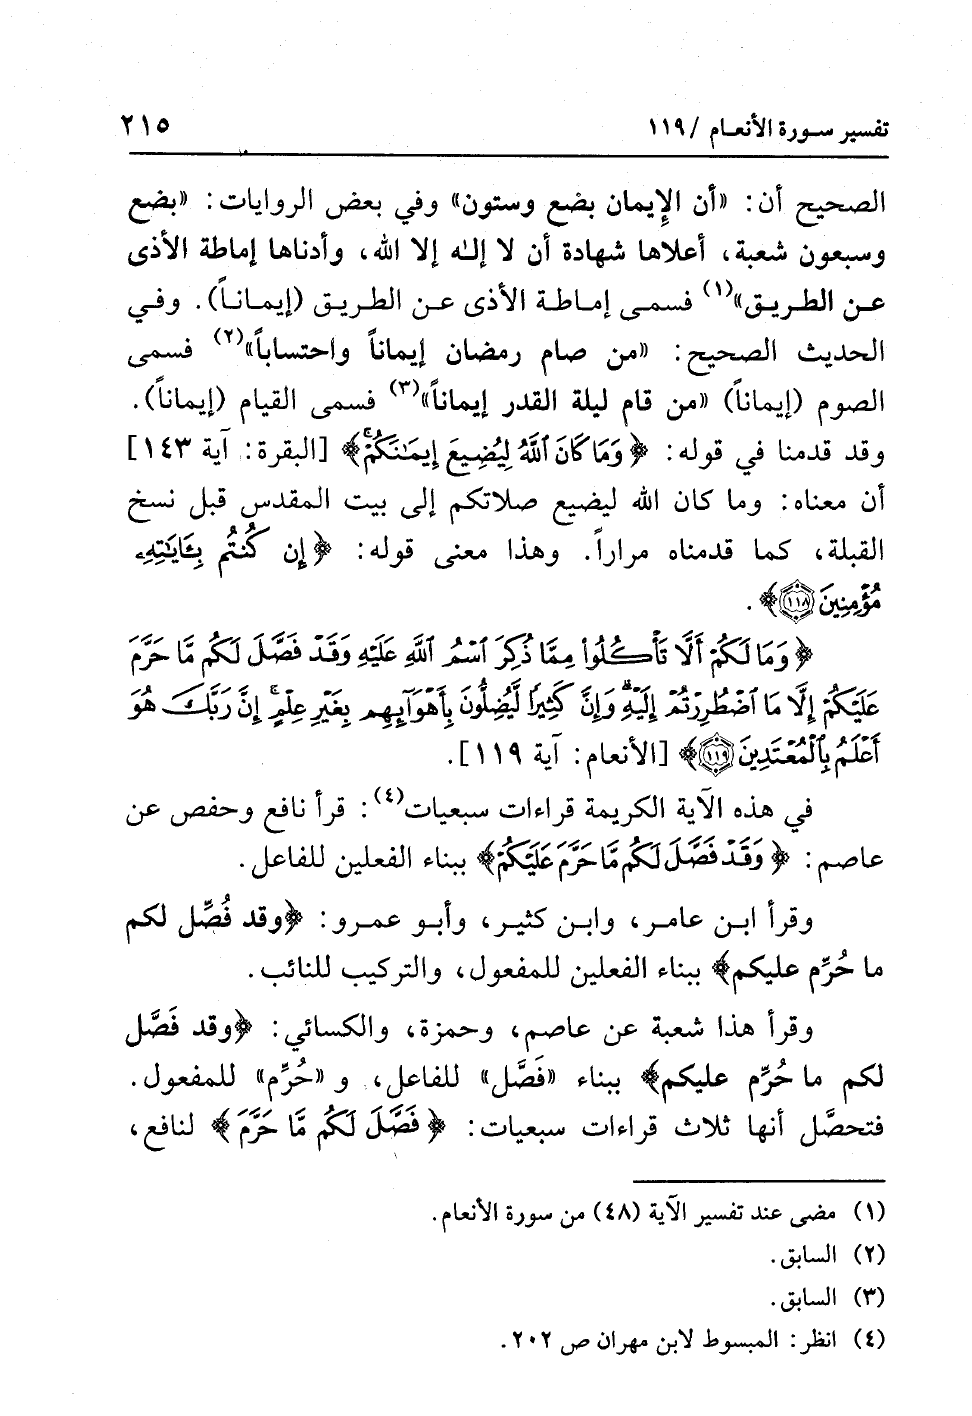 تفسير سورة الأنعام / ١١٩
٢١٥
الصحيح أن: «أن الإيمان بضع وستون» وفي بعض الروايات: «بضع
وسبعون شعبة، أعلاها شهادة أن لا إله إلا الله، وأدناها إماطة الأذى
عن الطريق»(١) فسمى إماطة الأذى عن الطريق (إيماناً). وفي
الحديث الصحيح: «من صام رمضان إيماناً واحتساباً»(٢) فسمى
الصوم (إيماناً) «من قام ليلة القدر إيماناً»(٣) فسمى القيام (إيماناً).
وقد قدمنا في قوله: ﴿وَمَا كَانَ ٱللَّهُ لِيُضِيعَ إِيمَٰنَكُمْ ۚ﴾ [البقرة: آية ١٤٣]
أن معناه: وما كان الله ليضيع صلاتكم إلى بيت المقدس قبل نسخ
القبلة، كما قدمناه مراراً. وهذا معنى قوله: ﴿إِن كُنتُم بِـَٔايَٰتِهِۦ
مُؤْمِنِينَ ١١٨﴾.
﴿وَمَا لَكُمْ أَلَّا تَأْكُلُوا۟ مِمَّا ذُكِرَ ٱسْمُ ٱللَّهِ عَلَيْهِ وَقَدْ فَصَّلَ لَكُم مَّا حَرَّمَ
عَلَيْكُمْ إِلَّا مَا ٱضْطُرِرْتُمْ إِلَيْهِ ۗ وَإِنَّ كَثِيرًا لَّيُضِلُّونَ بِأَهْوَآئِهِم بِغَيْرِ عِلْمٍ ۗ إِنَّ رَبَّكَ هُوَ
أَعْلَمُ بِٱلْمُعْتَدِينَ ١١٩﴾ [الأنعام: آية ١١٩].
في هذه الآية الكريمة قراءات سبعيات(٤): قرأ نافع وحفص عن
عاصم: ﴿وَقَدْ فَصَّلَ لَكُم مَّا حَرَّمَ عَلَيْكُمْ﴾ ببناء الفعلين للفاعل.
وقرأ ابن عامر، وابن كثير، وأبو عمرو: ﴿وقد فُصِّل لكم
ما حُرِّم عليكم﴾ ببناء الفعلين للمفعول، والتركيب للنائب.
وقرأ هذا شعبة عن عاصم، وحمزة، والكسائي: ﴿وقد فَصَّل
لكم ما حُرِّم عليكم﴾ ببناء «فَصَّل» للفاعل، و «حُرِّم» للمفعول.
فتحصَّل أنها ثلاث قراءات سبعيات: ﴿فَصَّلَ لَكُم مَّا حَرَّمَ﴾ لنافع،
(١) مضى عند تفسير الآية (٤٨) من سورة الأنعام.
(٢) السابق.
(٣) السابق.
(٤) انظر: المبسوط لابن مهران ص ٢٠٢.